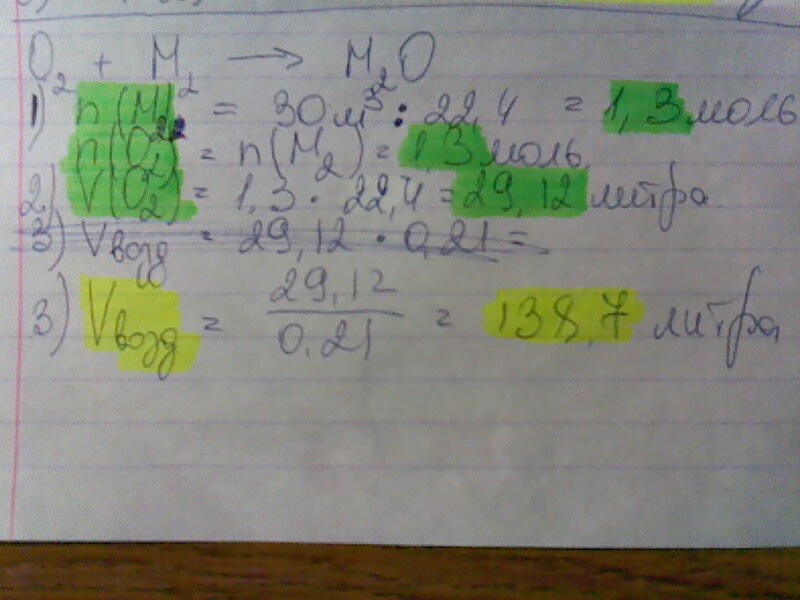 O₂ + H₂ → H₂O
1) n(H₂) = 30 м³ : 22,4 = 1,3 моль
n(O₂) = n(H₂) = 1,3 моль.
2) V(O₂) = 1,3 · 22,4 = 29,12 литра
3) Vвозд = 29,12 · 0,21 =
3) Vвозд = 29,12 / 0.21 = 138,7 литра,